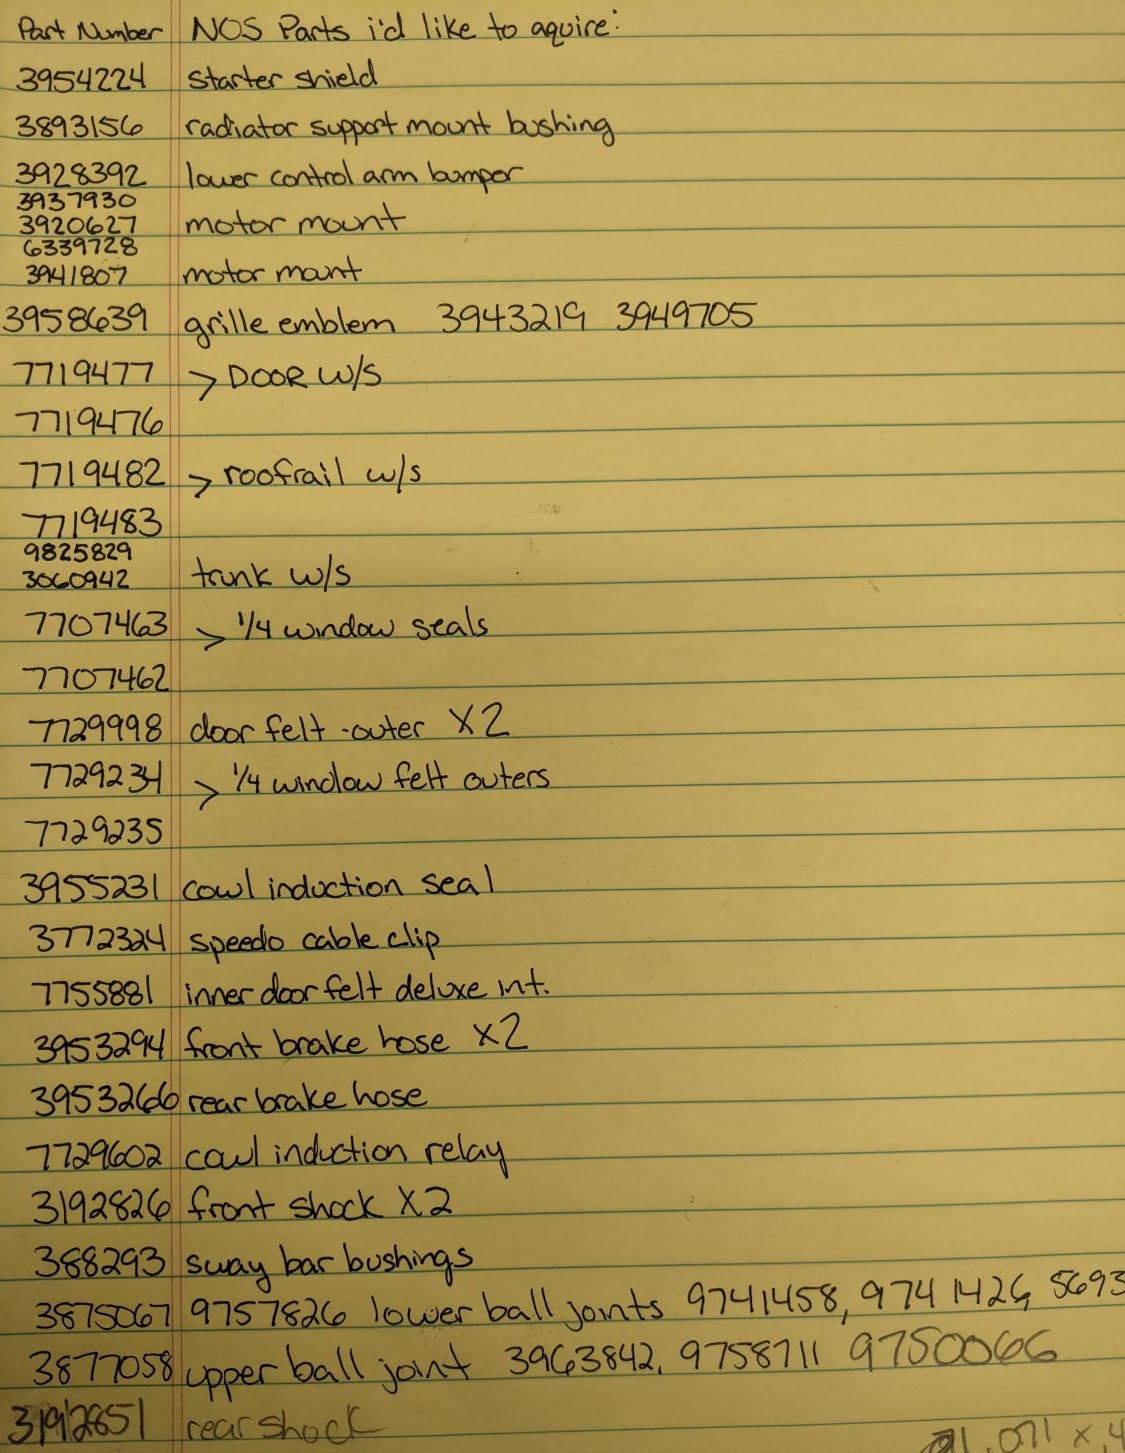 Part Number NOS Parts i'd like to aquire:
3954224 starter shield
3893156 radiator support mount bushing
3928392 lower control arm bumper
3937930
3920627 motor mount
6339728
3941807 motor mount
3958639 grille emblem 3943219 3949705
7719477 > DOOR W/S
7719476
7719482 > roofrail w/s
7719483
9825829
3060942 trunk w/s
7707463 > 1/4 window seals
7707462
7729998 door felt -outer X2
7729234 > 1/4 window felt outers
7729235
3955231 cowl induction seal
3772324 speedo cable clip
7755881 inner door felt deluxe int.
3953294 front brake hose X2
3953266 rear brake hose
7729602 cowl induction relay
3192826 front shock X2
388293 sway bar bushings
3875067 9757826 lower ball joints 9741458, 9741426, 5693
3877058 upper ball joint 3963842, 9758711 9750066
3192851 rear shock